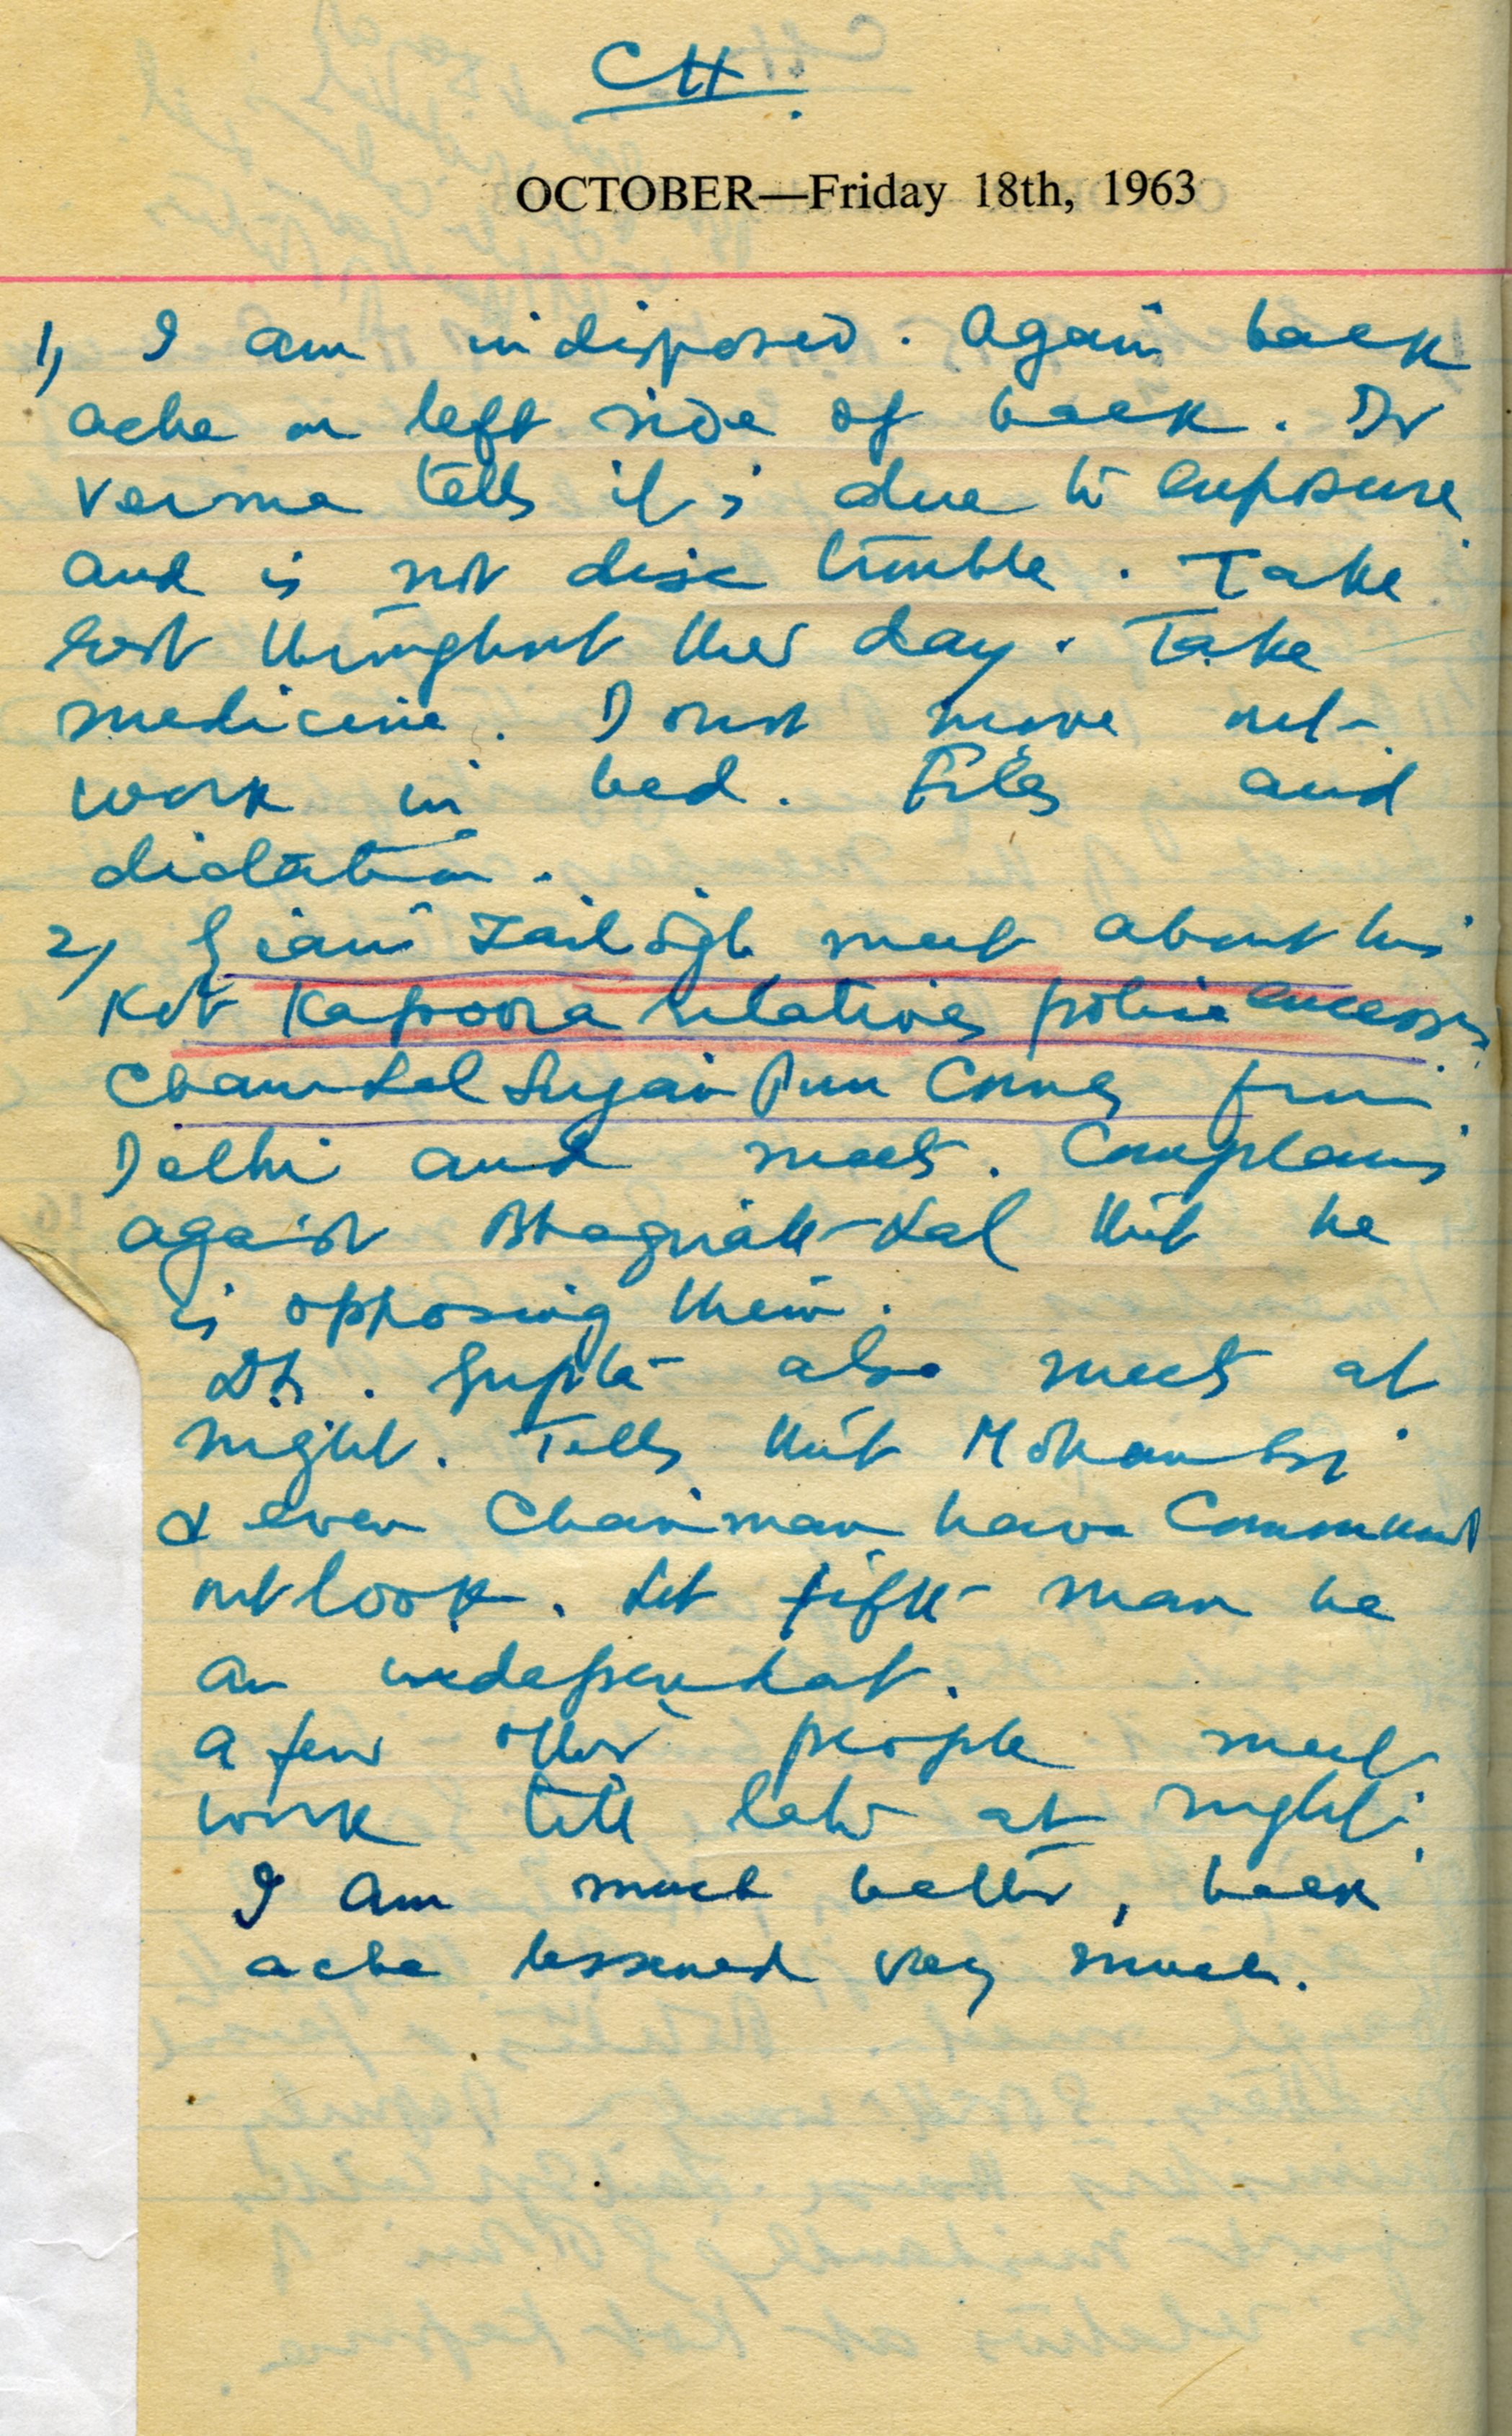 CH.
OCTOBER—Friday 18th, 1963
1) I am indisposed. Again back
ache on left side of back. Dr
Verma tells it is due to exposure
and is not disc trouble. Take
rest throughout the day. Take
medicine. Donot move out-
work in bed. Files and
dictation.
2) Giani Zail Sigh meet about his
Kot Kapoora relatives police excesses
Chaman Lal Sugar Run Comes from
Delhi and meets. Complains
against Bhagirath Lal that he
is opposing them.
Dr. Gupta also meets at
night. Tells that Mohan
& even Chairman have Communist
outlook. Let fifth man be
an independat.
A few other people meet
work till late at night.
I am much better, back
ache lessened very much.